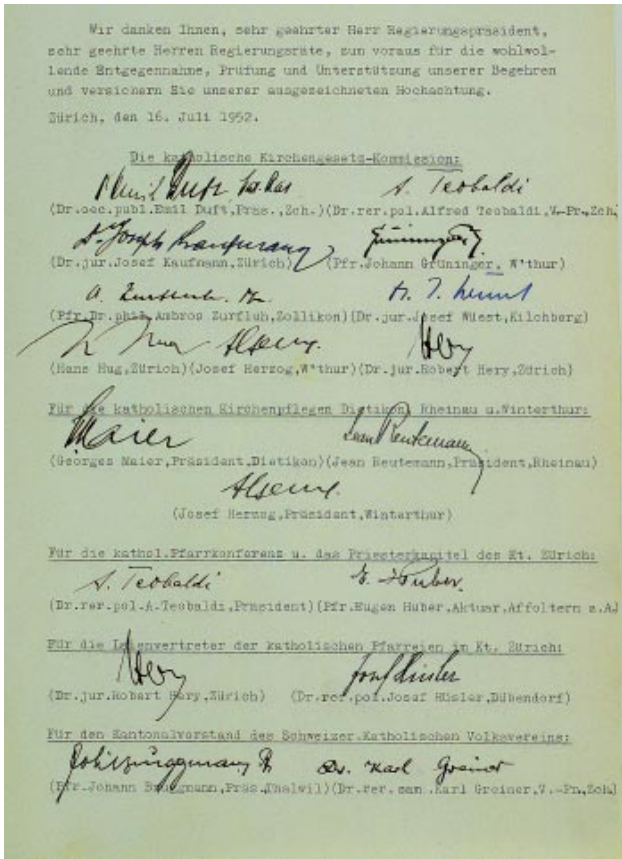 Wir danken Ihnen, sehr geehrter Herr Regierungspräsident,
sehr geehrte Herren Regierungsräte, zum voraus für die wohlwol-
lende Entgegennahme, Prüfung und Unterstützung unserer Begehren
und versichern Sie unserer ausgezeichneten Hochachtung.
Zürich, den 16. Juli 1952.
Die katholische Kirchengesetz-Kommission:
A. Teobaldi
(Dr.oec.publ.Emil Duft,Präs.,Zch.)(Dr.rer.pol.Alfred Teobaldi,V.-Pr.,Zch.
Dr Joseph Kaufmann
(Dr.jur.Josef Kaufmann,Zürich) (Pfr.Johann Grüninger, W'thur)
(Pfr.Dr.phil.Ambros Zurfluh,Zollikon)(Dr.jur.Josef Wüest,Kilchberg)
Hery
(Hans Hug,Zürich)(Josef Herzog,W'thur)(Dr.jur.Robert Hery,Zürich)
Für die katholischen Kirchenpflegen Dietikon, Rheinau u.Winterthur:
Maier Jean Reutemann
(Georges Maier,Präsident,Dietikon)(Jean Reutemann,Präsident,Rheinau)
(Josef Herzog,Präsident,Winterthur)
Für die kathol.Pfarrkonferenz u. das Priesterkapitel des Kt. Zürich:
A. Teobaldi E. Huber.
(Dr.rer.pol.A.Teobaldi,Präsident)(Pfr.Eugen Huber,Aktuar,Affoltern a.A)
Für die Laienvertreter der katholischen Pfarreien im Kt. Zürich:
Hery Josef Hüsler
(Dr.jur.Robert Hery,Zürich) (Dr.rer.pol.Josef Hüsler,Dübendorf)
Für den Kantonalvorstand des Schweizer.Katholischen Volksvereins:
Joh. Brüggmann Pfr. Dr. Karl Greiner
(Pfr.Johann Brüggmann,Präs.,Thalwil)(Dr.rer.cam.Karl Greiner,V.-Pn,Zch.)